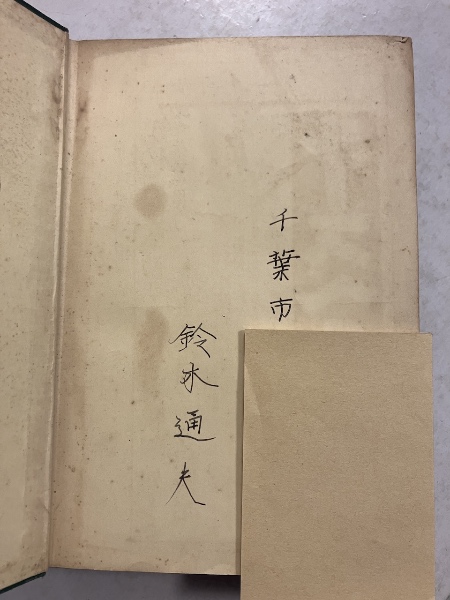 千葉市
鈴木通夫